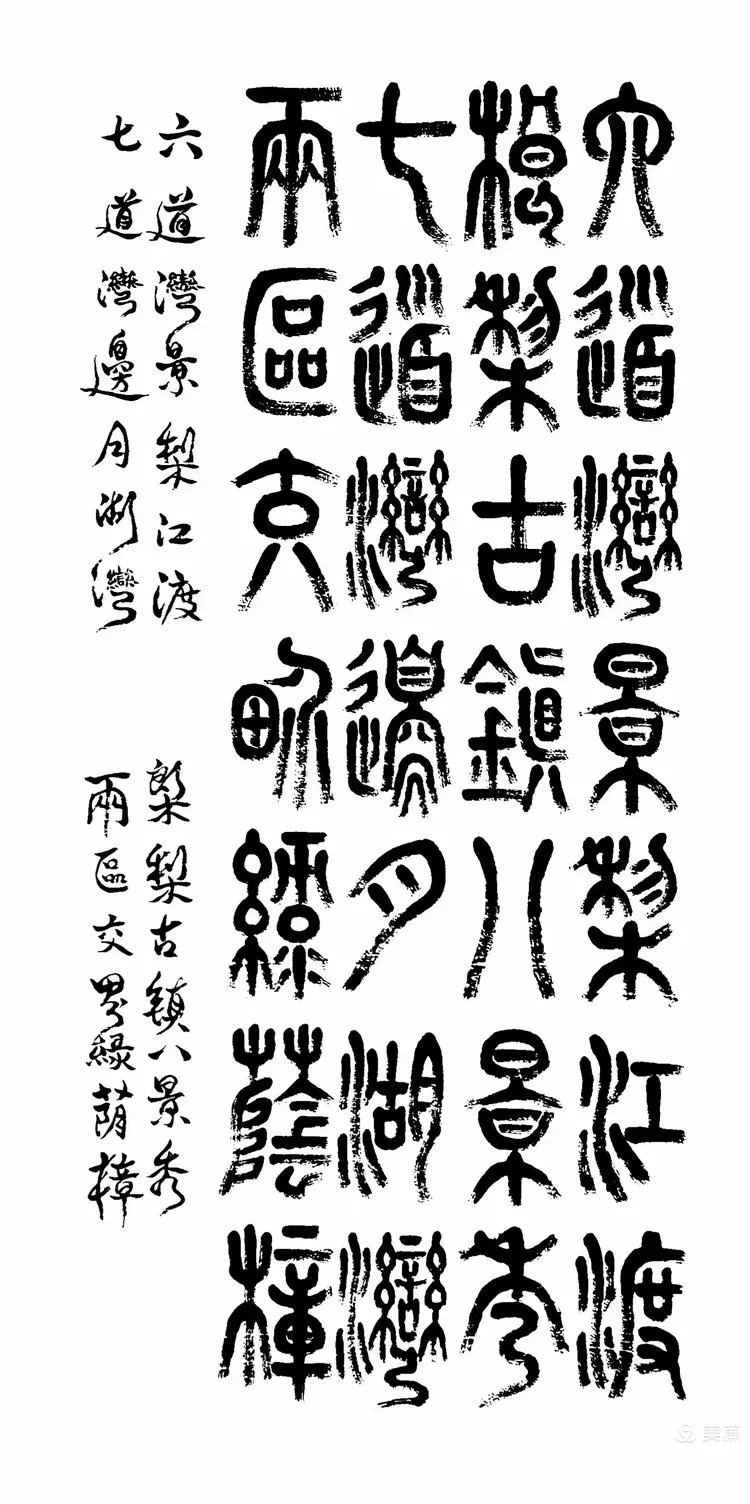 六道灣景梨江渡
㮾梨古鎮八景秀
七道灣邊月湖灣
兩區交界綠蔭樟
六道灣景梨江渡
㮾梨古鎮八景秀
七道灣邊月湖灣
兩區交界綠荫樟
美篇